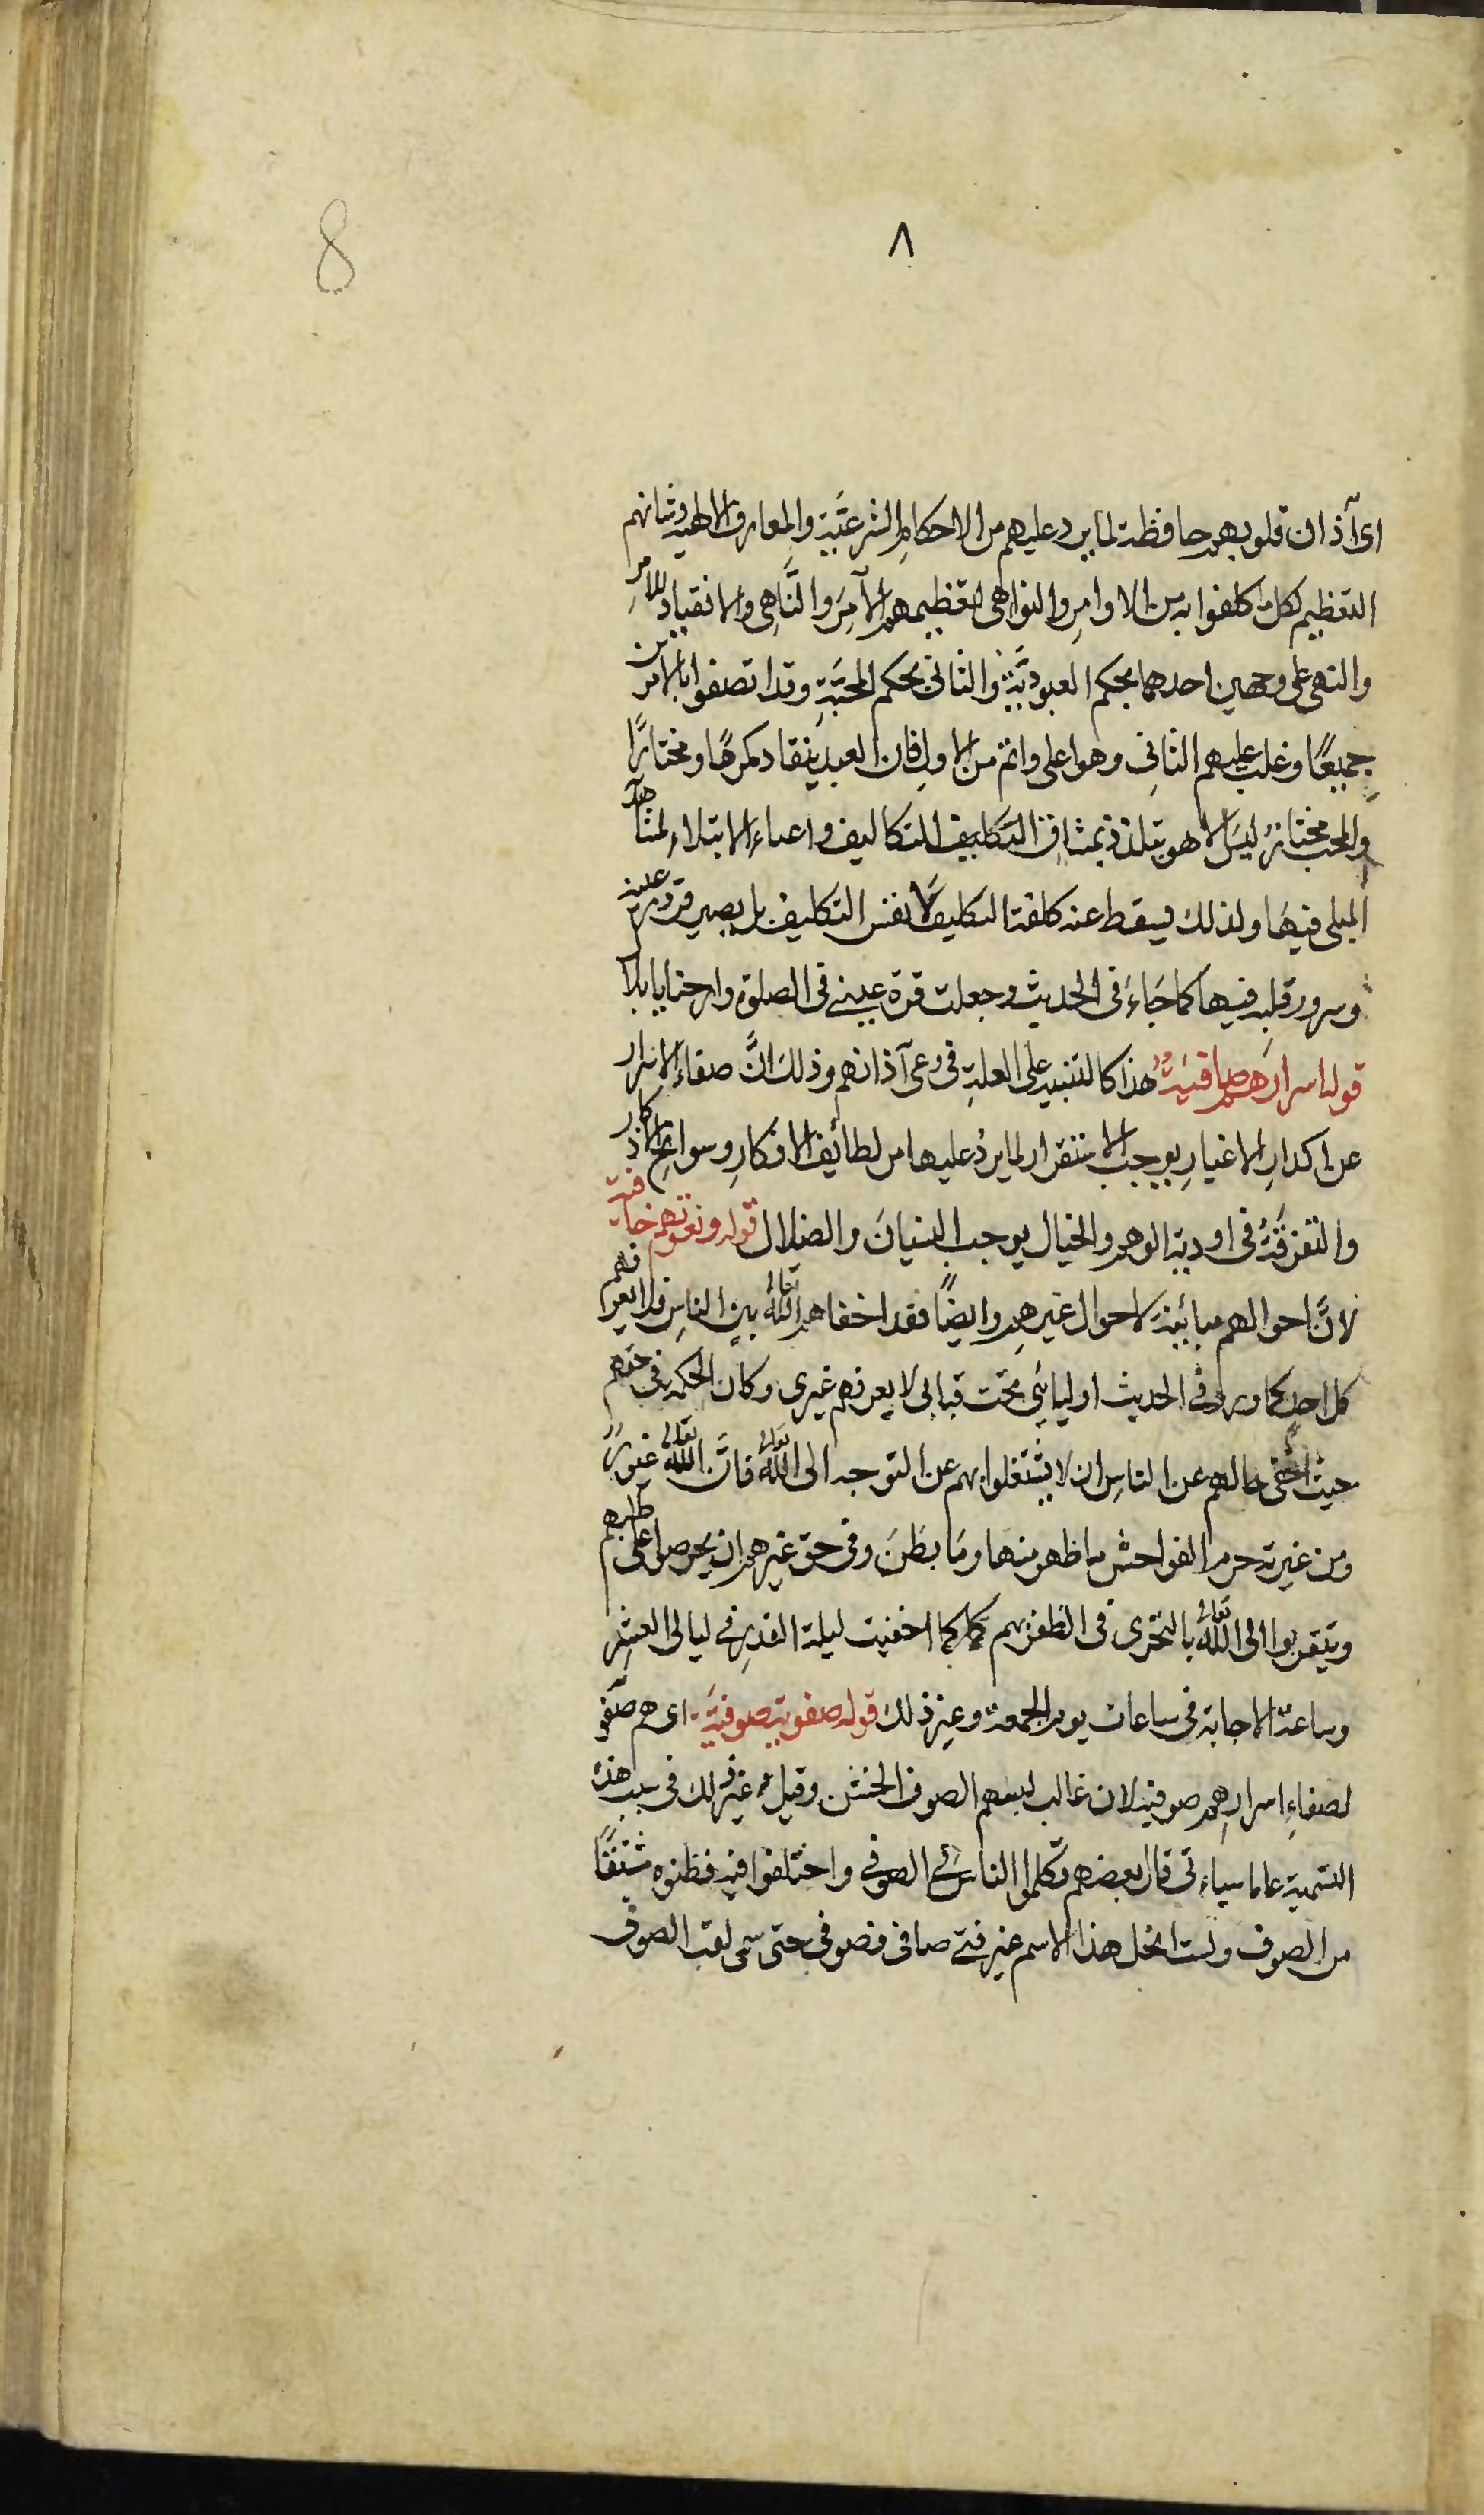 ٨
8
اى آذان قلوبهم حافظة لما يرد عليهم من الاحكام الشرعيَّة والمعارف الالهية وشانهم
التعظيم لكل ما كلفوا به من الاوامرِ والنواهى لتعظيمهم الآمِرَ والنَّاهِى والانقياد للامرِ
والنهى على وجهين احدهما بحكم العبوديَّةِ والثانى بحكم المحبَّةِ وقد اتصفوا بالامرين
جميعًا وغلب عليهم الثانِى وهو اعلى واتم من الاولِ فان العبد ينقاد مكرهًا ومختارًا
والمحب مختارٌ ليسَ الا هو يتلذذ بمشاق التكليف التكاليف واعباء الابتلاء لمشاهدة
المبلى فيها ولذلك يسقط عنه كلفة التكليف لا نفس التكليف بل يصير قرة عينه
وسرور قلبِه فيها كما جَاءَ فى الحديث وجعلت قرة عينى فى الصلوة وارحنا يا بلال
قوله اسرارهم صافيَةٌ هذا كالتنبيه على العلةِ فى وعى آذانهم وذلك انَّ صفاء الاسرار
عن اكدارِ الاغيارِ يوجب الاستقرار لما يردُ عليها من لطائف الافكارِ وسوانح الاذكار
والتفرقَةُ فى اودية الوهم والخيال يوجب النسيانَ والضلال قوله ونعوتهم خافية
لانَّ احوالهم مبائنة لاحوال غيرهم وايضًا فقد اخفاهم اللّٰهُ تعالى بين الناسِ فلا يعرفهم
كل احدٍ كما ورد فى الحديث اوليائى تحت قبابى لا يعرفهم غيرى وكان الحكمة فى حقهم
حيث اخفى حالهم عن الناسِ ان لا يشتغلوا بهم عن التوجه الى اللّٰه تعالى فانَّ اللّٰه تعالى غيورٌ
ومن غيرته حرم الفواحش ما ظهر منها ومَا بطَنَ وفى حق غيرهم ان يحرصوا على طلبهم
ويتقربوا الى اللّٰه تعالى بالتحرى فى الظفر بهم كما اخفيت ليلة القدرِ فى ليالى العشرِ
وساعة الاجابة فى ساعات يوم الجمعة وغير ذلك قوله صفوية صوفيَة اى هم صفوية
لصفاءِ اسرارِهم صوفية لان غالب لبسهم الصوف الخشن وقيل غير ذلك فى سبب هذه
التسمية على ما سياءتى قال بعضهم تكلموا الناس فى الصوفى واختلفوا فيه فظنوه مشتقًا
من الصوف ولست انحل هذا الاسم غير فتى صافى فصوفى حتى سمى لقب الصوفى